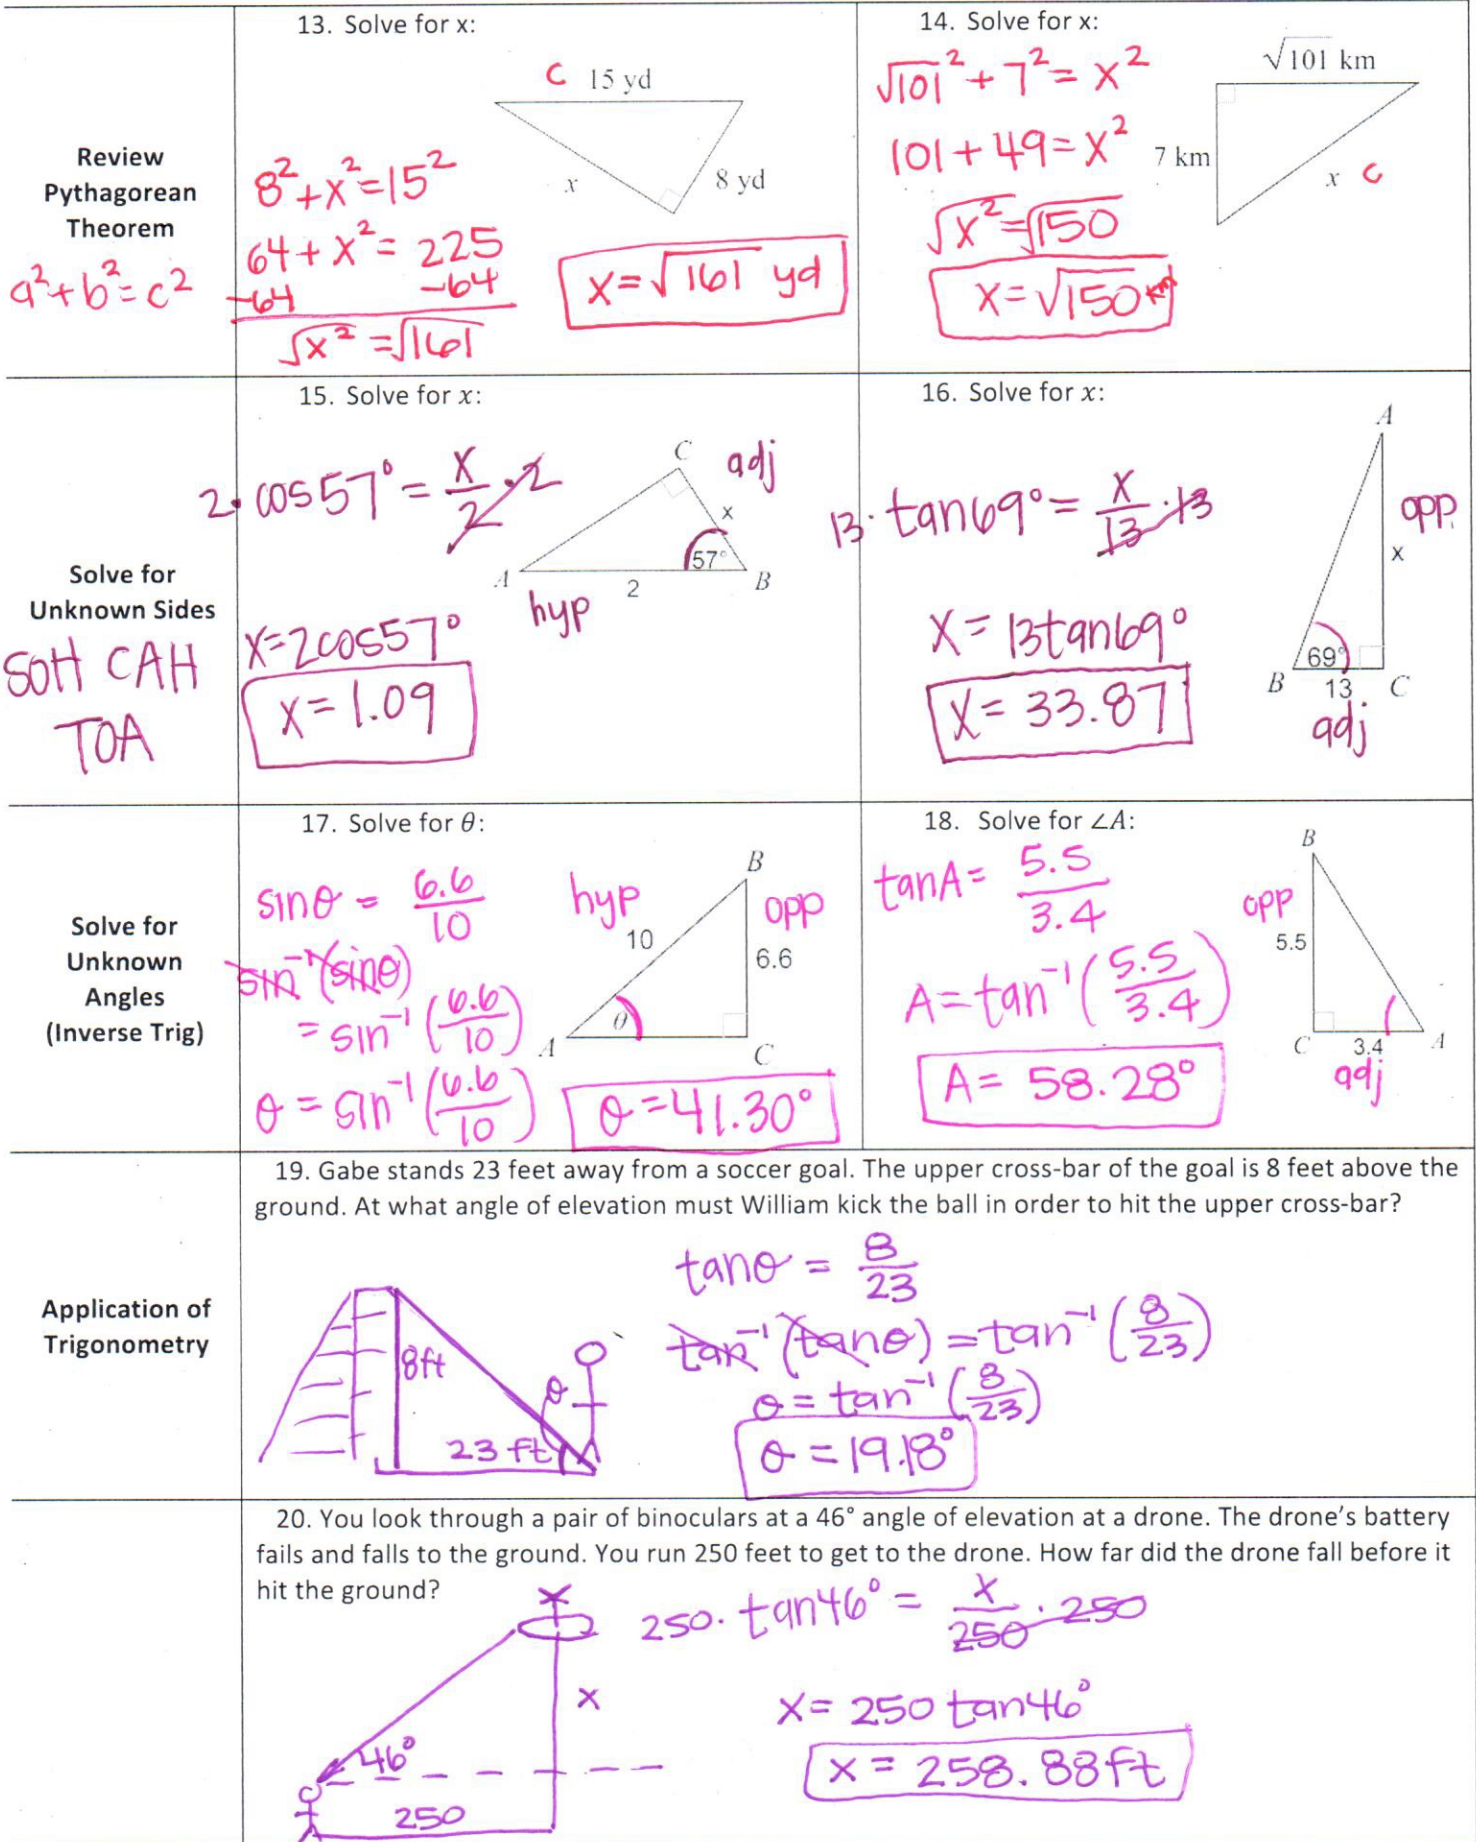 Review
Pythagorean
Theorem
a²+b²=c²
13. Solve for x:
C 15 yd
x
8 yd
8²+x²=15²
64+x²= 225
-64 -64
√x² =√161
x=√161 yd
14. Solve for x:
√101² + 7² = x²
101 + 49 = x²
√x²=√150
x=√150 km
√101 km
7 km
x C
Solve for
Unknown Sides
SOH CAH
TOA
15. Solve for x:
2·cos57° = x/2 ·2
x=2cos57°
x=1.09
C adj
x
57°
A 2 B
hyp
16. Solve for x:
13· tan69° = x/13 ·13
x= 13tan69°
x= 33.87
A
opp
x
69°
B 13 C
adj
Solve for
Unknown
Angles
(Inverse Trig)
17. Solve for θ:
sinθ = 6.6/10
sin⁻¹(sinθ)
= sin⁻¹(6.6/10)
θ = sin⁻¹(6.6/10)
θ=41.30°
B
hyp opp
10
6.6
θ
A C
18. Solve for ∠A:
tanA= 5.5/3.4
A=tan⁻¹(5.5/3.4)
A= 58.28°
B
opp
5.5
C 3.4 A
adj
Application of
Trigonometry
19. Gabe stands 23 feet away from a soccer goal. The upper cross-bar of the goal is 8 feet above the
ground. At what angle of elevation must William kick the ball in order to hit the upper cross-bar?
8ft
θ
23 ft
tanθ = 8/23
tan⁻¹(tanθ) = tan⁻¹(8/23)
θ = tan⁻¹(8/23)
θ = 19.18°
20. You look through a pair of binoculars at a 46° angle of elevation at a drone. The drone's battery
fails and falls to the ground. You run 250 feet to get to the drone. How far did the drone fall before it
hit the ground?
x
46°
250
250· tan46° = x/250 ·250
x= 250 tan46°
x = 258.88ft